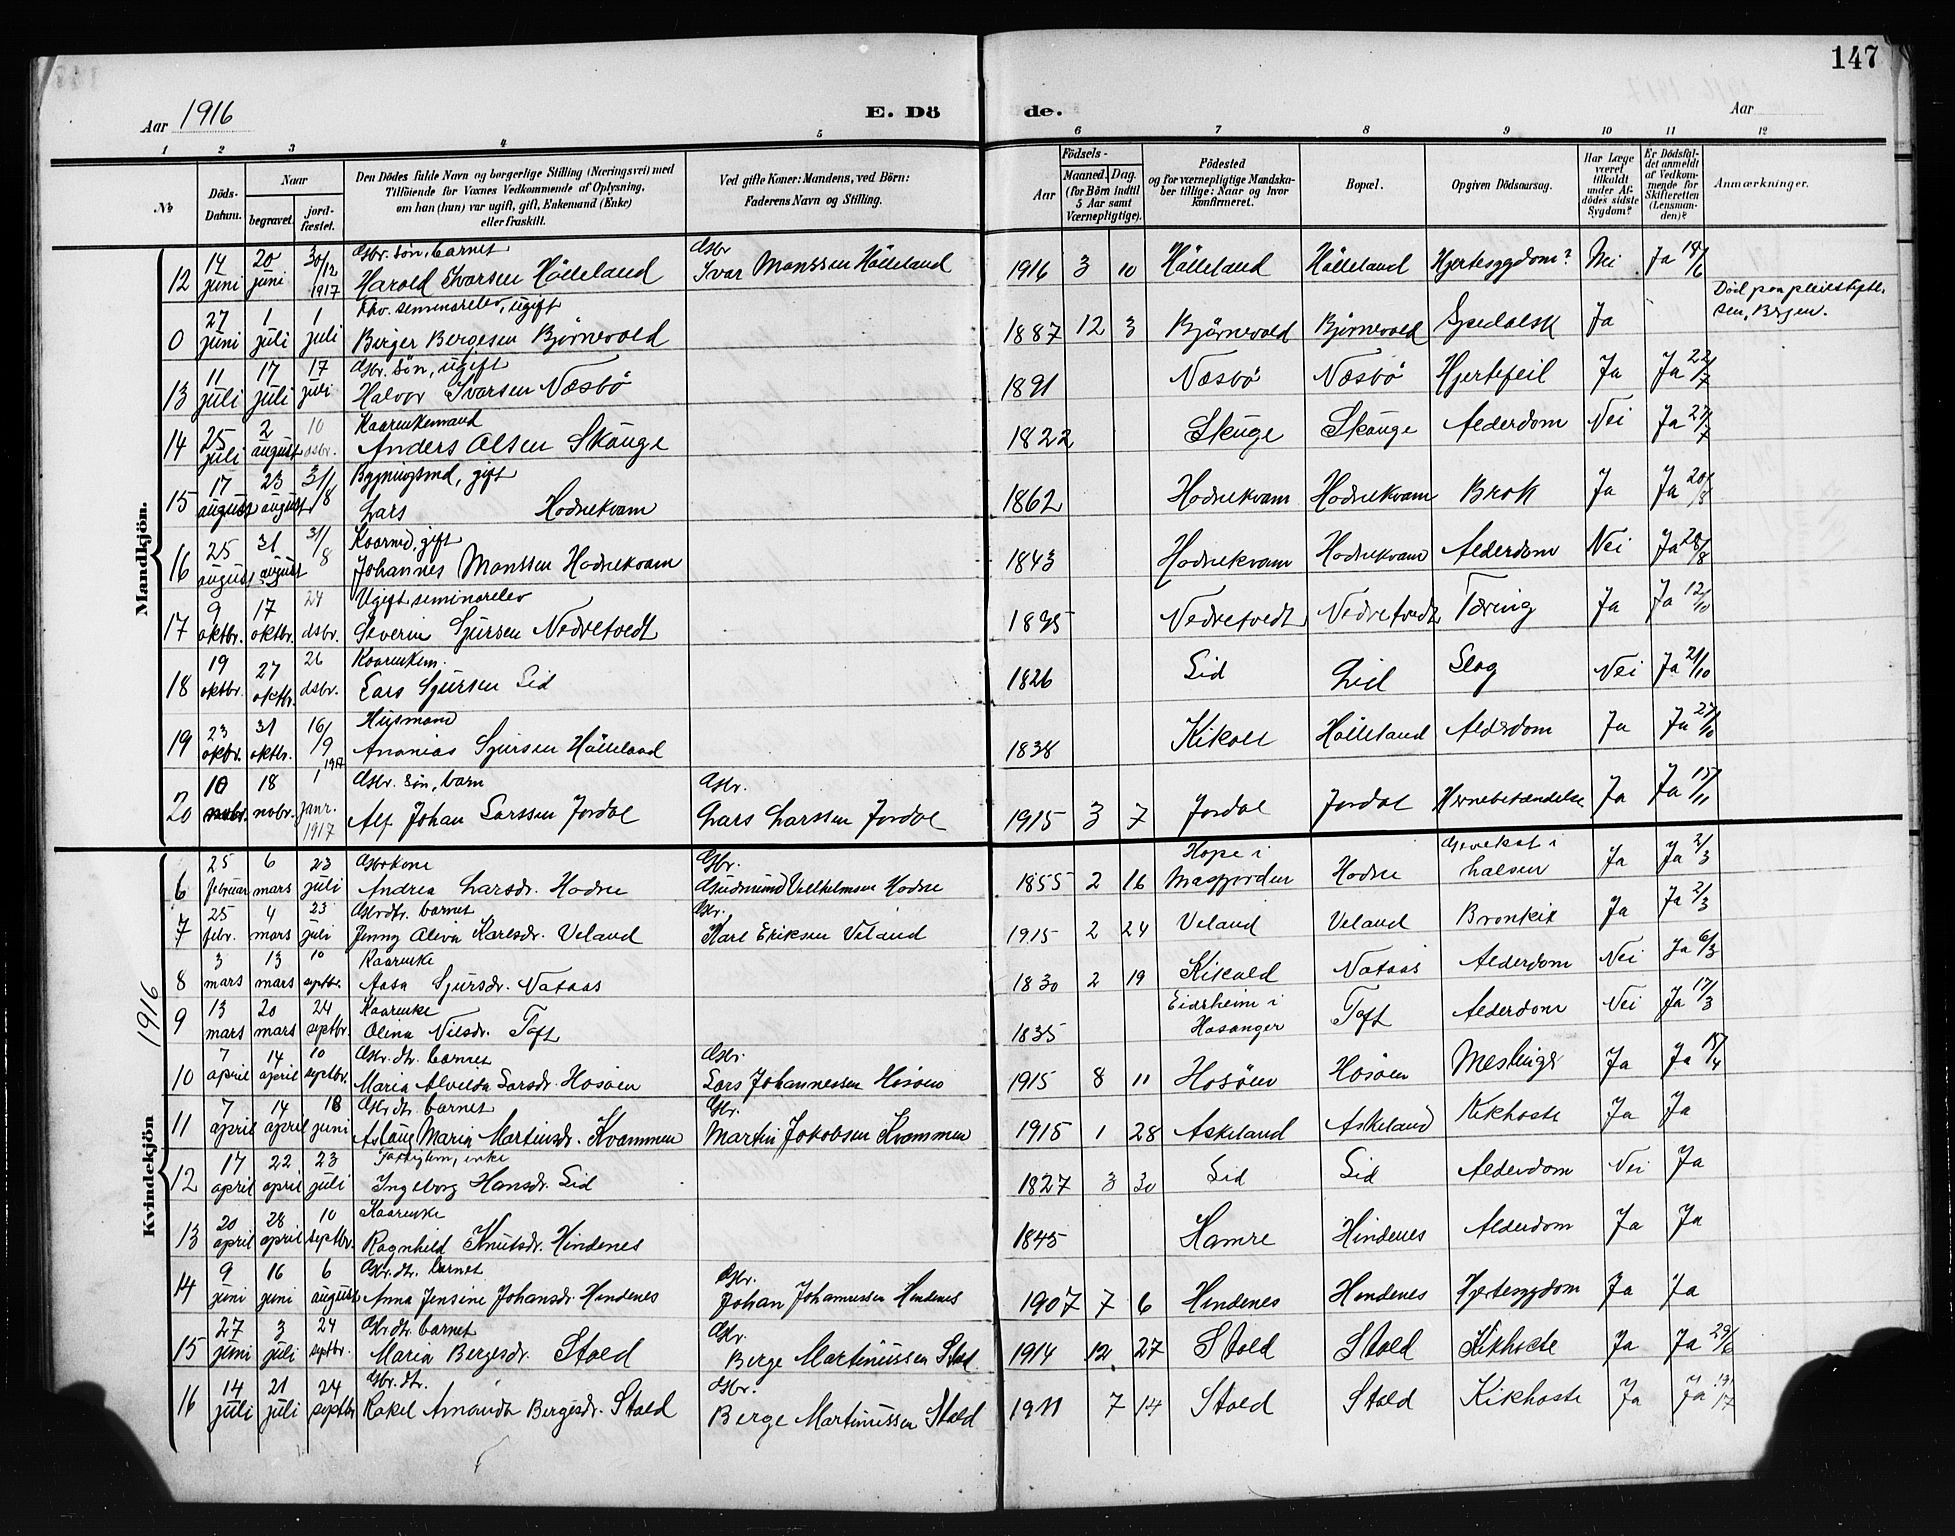 147
Aar 1916 E. Dö de. Aar
1 2 3 4 5 6 7 8 9 10 11 12
№ Döds-Datum. Naar begravet. jord-fæstet. Den Dödes fulde Navn og borgerlige Stilling (Næringsvei) med Tilföiende for Voxnes Vedkommende af Oplysning, om han (hun) var ugift, gift, Enkemand (Enke) eller fraskilt. Ved gifte Koner: Mandens, ved Börn: Faderens Navn og Stilling. Födsels- Aar Maaned. Dag. (for Börn indtil 5 Aar samt Værnepligtige). Födested og for værnepligtige Mandskaber tillige: Naar og hvor konfirmeret. Bopæl. Opgiven Dödsaarsag. Har Læge været tilkaldt under Afdödes sidste Sygdom? Er Dödsfaldet anmeldt af Vedkommende for Skifteretten (Lensmanden)? Anmærkninger.
Mandkjön.
12 14 juni 20 juni 30/12 1917 Gbr. søn, barnet Harold Ivarsen Hålleland Gbr Ivar Monssen Hålleland 1916 3 10 Hålleland Hålleland Hjertesygdom? Nei Ja 18/6
0 27 juni 1 juli 1 juli Fhv. seminarelev, ugift Birger Bergesen Bjørnevold 1887 12 3 Bjørnevold Bjørnevold Spedalsk Ja Död paa pleiestiftelsen, Bergen.
13 11 juli 17 juli 17 juli Gbr. søn, ugift Halvor Ivarsen Næsbö 1891 Næsbö Næsbö Hjertefeil Ja Ja 22/7
14 25 juli 2 august 10 dsbr. Kaarenkemand Anders Olsen Skauge 1822 Skuge Skauge Alderdom Nei Ja 27/7
15 17 august 23 august 31/8 Bygningsmd, gift Lars Hodnekvam 1862 Hodnekvam Hodnekvam Brok Ja Ja 20/8
16 25 august 31 august 31/8 Kaarmd, gift Johannes Monssen Hodnekvam 1843 Hodnekvam Hodnekvam Alderdom Nei Ja 28/8
17 9 oktbr. 17 oktbr. 24 dsbr. Ugift seminarelev Severin Sjursen Nedretvedt 1895 Nedretvedt Nedretvedt Tæring Ja Ja 12/10
18 19 oktbr. 27 oktbr. 26 dsbr. Kaarenkem. Lars Sjursen Lid 1826 Lid Lid Slag Nei Ja 21/10
19 23 oktbr. 31 oktbr. 16/9 1917 Husmand Ananias Sjursen Hålleland 1838 Kikall Hålleland Alderdom Ja Ja 27/10
20 10 novbr. 18 novbr. 1 janr. 1917 Gbr. søn, barn Alf Johan Larssen Jordal Gbr. Lars Larssen Jordal 1915 3 7 Jordal Jordal Hjernebetændelse Ja Ja 15/11
1916
Kvindekjön
6 25 februar 6 mars 23 juli Gbrkone Andrea Larsdr. Hodne Gbr. Gudmund Vellhelmsen Hodne 1855 2 16 Hope i Masfjorden Hodne Gevekst i halsen Ja Ja 2/3
7 25 febr. 4 mars 23 juli Gbrdtr. barnet Jenny Oliva Karlsdr. Veland Gbr. Karl Eriksen Veland 1915 2 24 Veland Veland Bronkit Ja Ja 2/3
8 3 mars 13 mars 10 septbr. Kaarenke Aasa Sjursdr. Nataas 1830 2 19 Kikald Nataas Alderdom Nei Ja 6/3
9 13 mars 20 mars 24 septbr. Kaarenke Olina Nilsdr. Toft 1835 Eidsheim i Hosanger Toft Alderdom Nei Ja 17/3
10 7 april 14 april 10 septbr. Gbr. dtr. barnet Maria Alvilda Larsdr. Hosöen Gbr. Lars Johannessen Hosöen 1915 8 11 Hosöen Hosöen Meslinger Ja Ja 15/4
11 7 april 14 april 18 juni Gbr. dtr. barnet Aslaug Maria Martinsdr. Kvammen Gbr. Martin Jakobsen Kvammen 1915 1 28 Askeland Askeland Kikhoste Ja Ja
12 17 april 22 april 23 juli Fattiglem, enke Ingeborg Hansdr. Lid 1827 3 30 Lid Lid Alderdom Nei Ja
13 20 april 28 april 10 septbr. Kaarenke Ragnhild Knutsdr. Hindenes 1845 Hamre Hindenes Alderdom Ja Ja
14 9 juni 16 juni 6 august Gbr. dtr. barnet Anna Jensine Johansdr. Hindenes Gbr. Johan Johannessen Hindenes 1907 7 6 Hindenes Hindenes Hjertesygdom Ja Ja
15 27 juni 3 juli 24 septbr. Gbr. dtr. barnet Maria Bergesdr. Stold Gbr. Berge Martinussen Stold 1914 12 27 Stold Stold Kikhoste Ja Ja 29/6
16 14 juli 21 juli 24 septbr. Gbr. dtr. Rakel Amanda Bergesdr. Stold Gbr. Berge Martinussen Stold 1911 7 14 Stold Stold Kikhoste Ja Ja